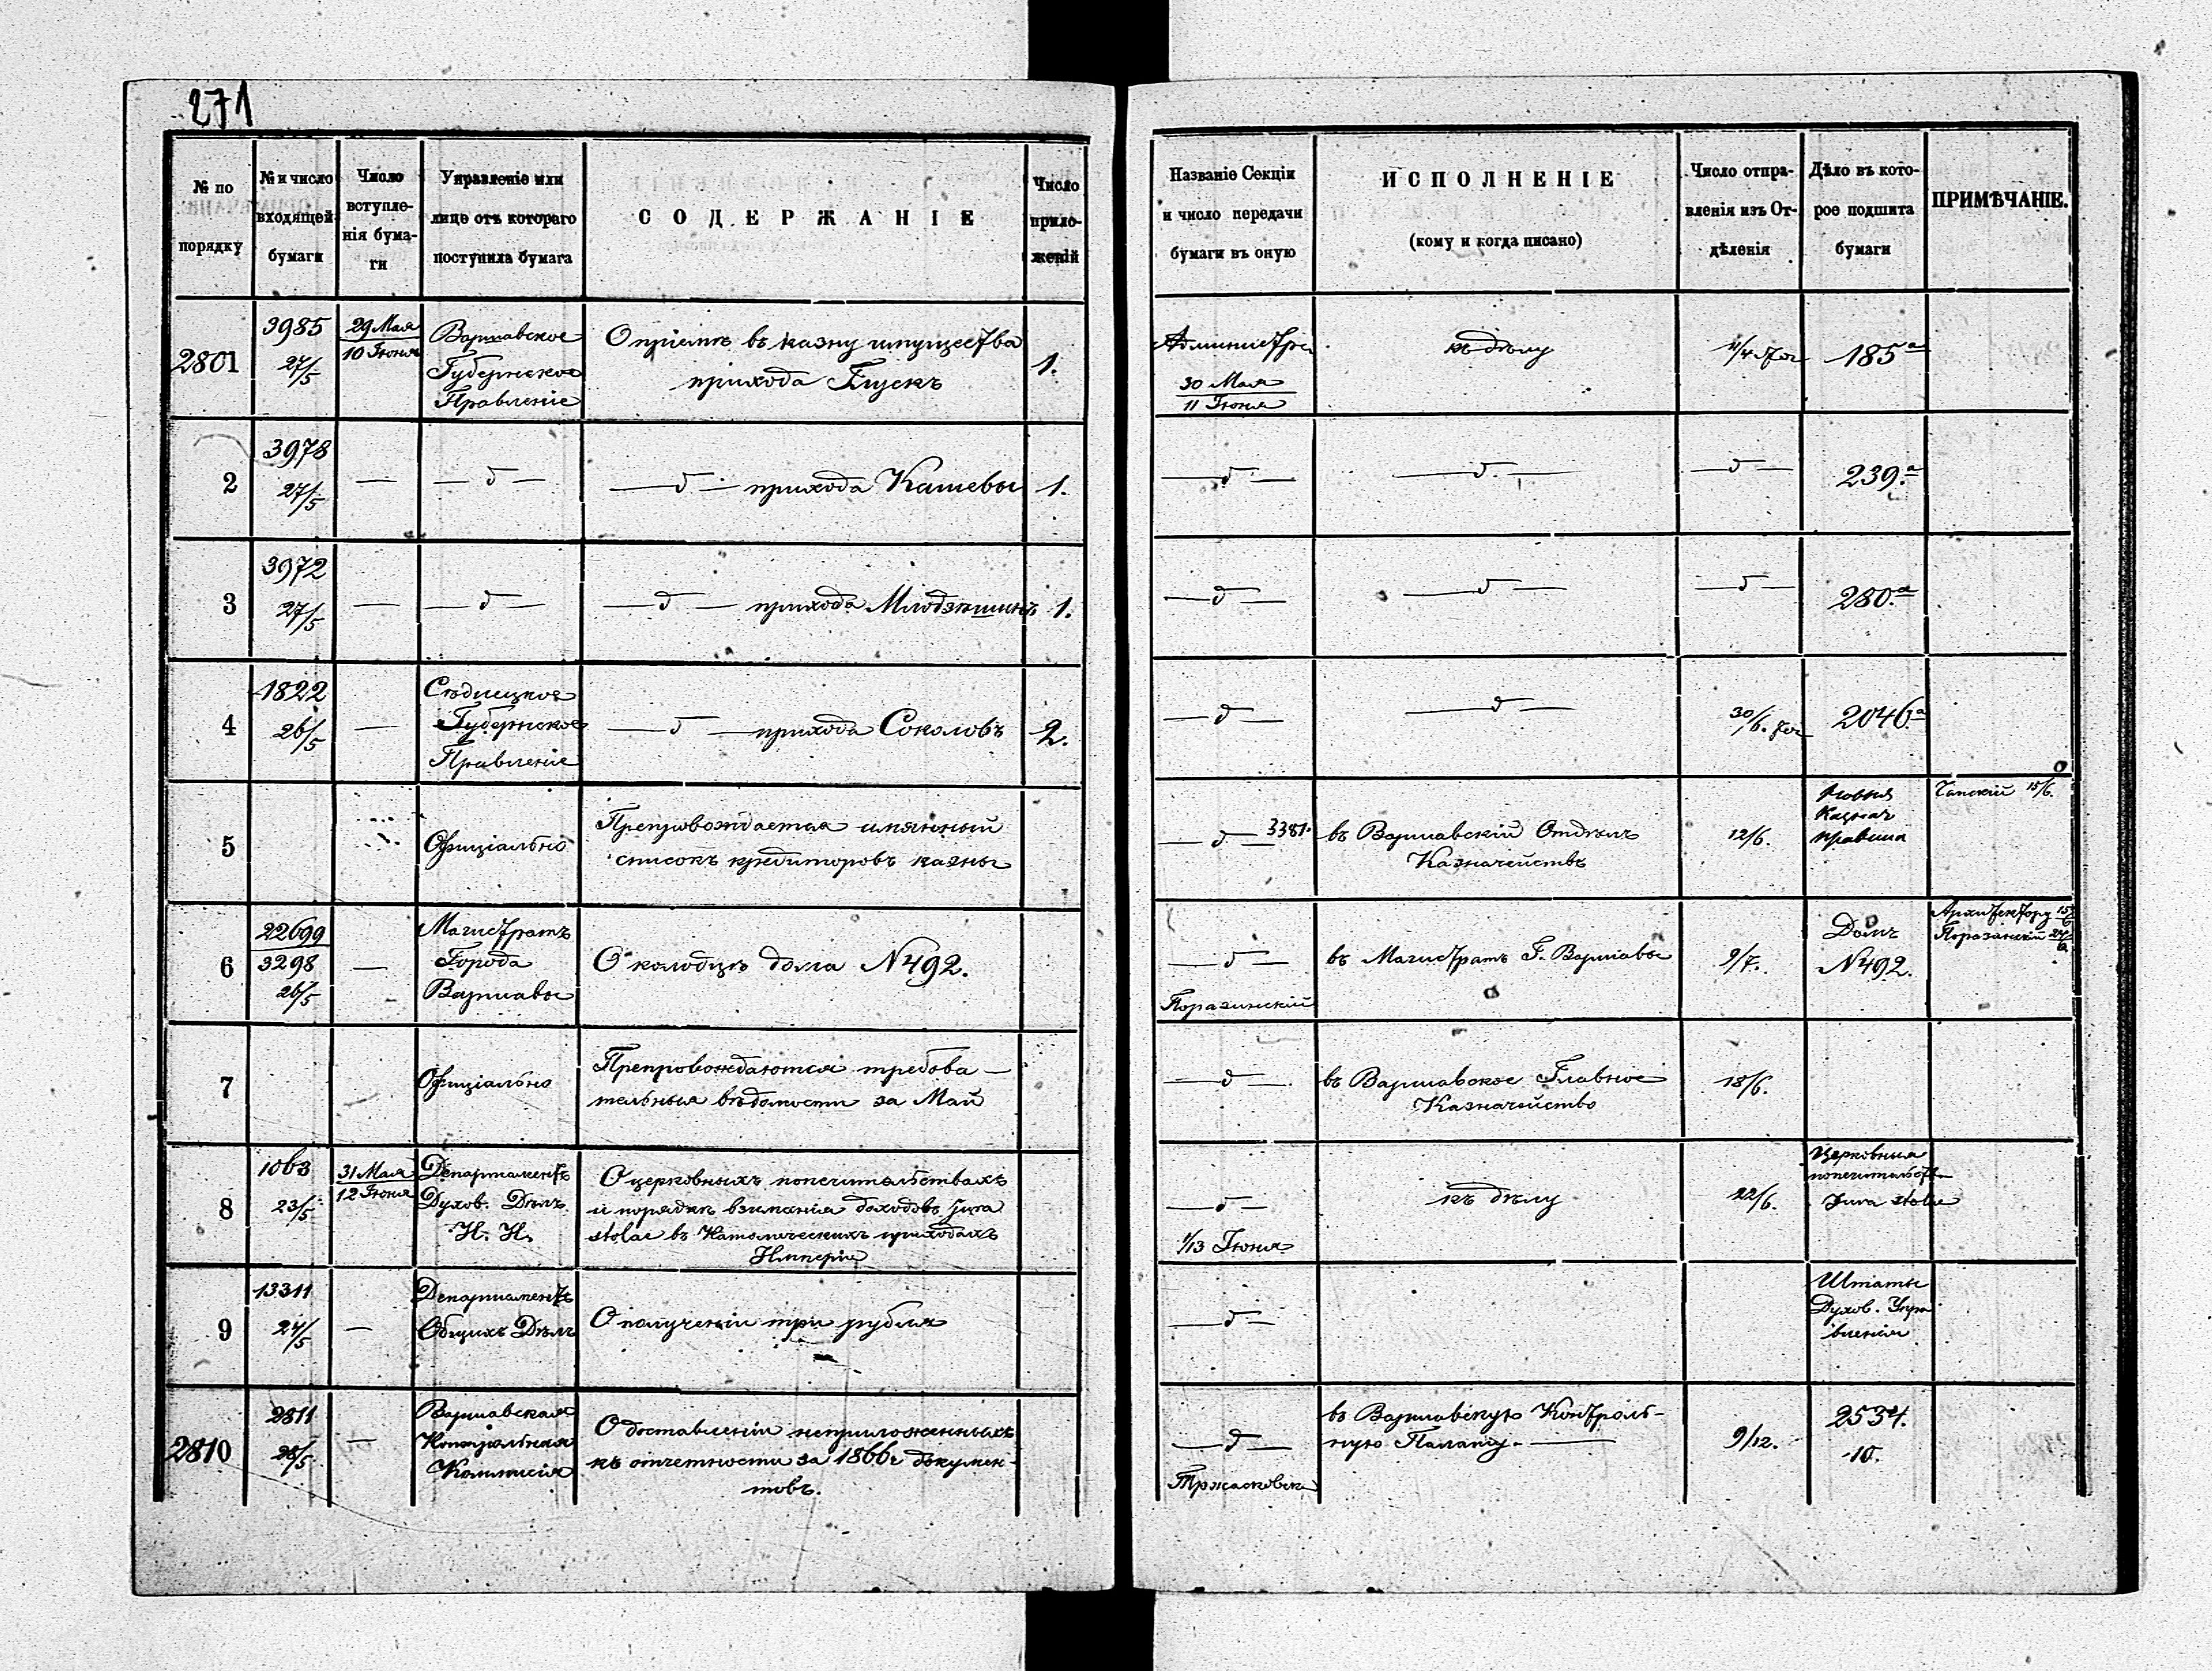 271
№ по порядку
№ и число входящей бумаги
Число вступле-нія бума-ги
Управленіе или лице отъ котораго поступила бумага
СОДЕРЖАНІЕ
Число прило-женій
Названіе Секціи и число передачи бумаги въ оную
ИСПОЛНЕНІЕ
(кому и когда писано)
Число отпра-вленія изъ От-дѣленія
Дѣло въ кото-рое подшита бумаги
ПРИМѢЧАНІЕ.
2801
3985
27/5
29 Мая
10 Іюня
Варшавское
Губернское
Правленіе
О пріемѣ въ казну имущества
прихода
1.
30 Мая
11 Іюня
къ дѣлу
185 а
2
3978
27/5
— д —
— д — прихода
1.
— д —
— д. —
— д —
239. а
3
3972
27/5
— д —
— д — прихода
1.
— д —
— д —
— д —
280. а
4
1822
26/5
Сѣдлецкое
Губернское
Правленіе
— д — прихода Соколовъ
2.
— д —
— д —
30/6.
2046 а
5
Офиціально
Препровождается имянный
списокъ кредиторовъ казны
— д — 3381.
въ Варшавскій Отдѣлъ
Казначействъ
12/6.
15/6.
6
22699
3298
26/5
Магистратъ
Города
Варшавы
О колодцѣ дома N 492.
— д —
въ Магистратъ Г. Варшавы
9/7.
Домъ
N 492.
Архитектору
7
Офиціально
Препровождаются требова-
тельныя вѣдомости за Май
— д —
въ Варшавское Главное
Казначейство
18/6.
8
1063
23/5
31 Мая
12 Іюня
Департаментъ
Духов. Дѣлъ
И. И.
О церковныхъ попечительствахъ
и порядкѣ взиманія доходовъ jura
stolae въ Католическихъ приходахъ
Имперіи
— д —
1/13 Іюня
къ дѣлу
22/6.
Церковныя
jura stolae
9
13311
24/5
Департаментъ
Общихъ Дѣлъ
О полученіи три рубля
— д —
Штаты
Духов. Упра
вленія
2810
2811
28/5
Варшавская
Контрольная
Коммисія
О доставленіи неприложенныхъ
къ отчетности за 1866 г докумен-
товъ.
— д —
въ Варшавскую Контроль-
ную Палату.
9/12.
2534.
10.